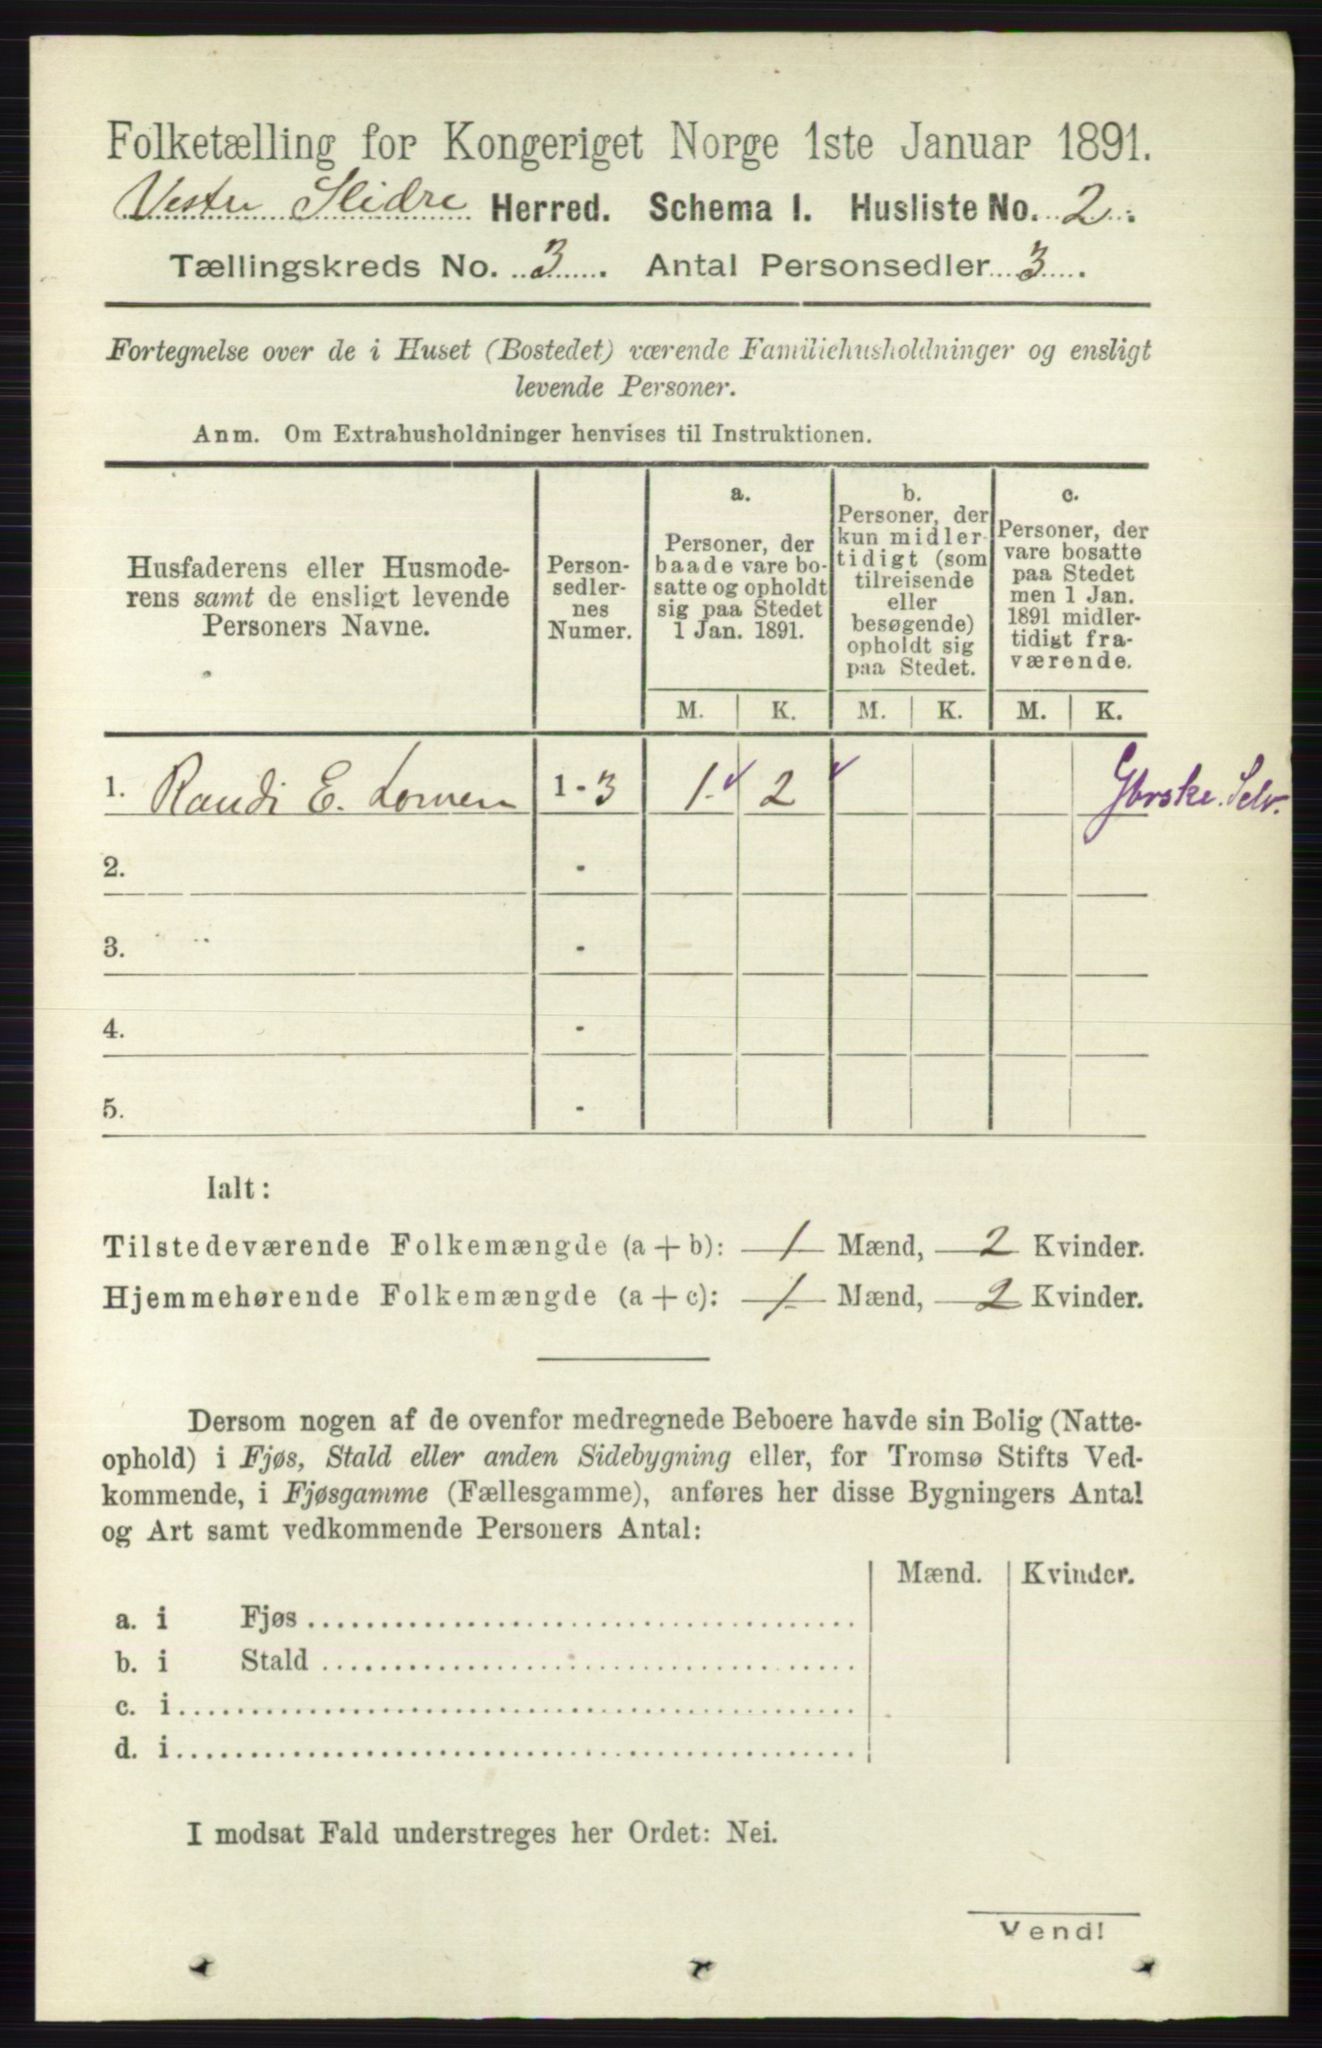 Folketælling for Kongeriget Norge 1ste Januar 1891.
Vestre Slidre Herred. Schema I. Husliste No. 2.
Tællingskreds No. 3. Antal Personsedler 3.
Fortegnelse over de i Huset (Bostedet) værende Familiehusholdninger og ensligt
levende Personer.
Anm. Om Extrahusholdninger henvises til Instruktionen.
Husfaderens eller Husmode-
rens samt de ensligt levende
Personers Navne.
Person-
sedler-
nes
Numer.
a.
Personer, der
baade vare bo-
satte og opholdt
sig paa Stedet
1 Jan. 1891.
b.
Personer, der
kun midler-
tidigt (som
tilreisende
eller
besøgende)
opholdt sig
paa Stedet.
c.
Personer, der
vare bosatte
paa Stedet
men 1 Jan.
1891 midler-
tidigt fra-
værende.
M. K. M. K. M. K.
1. Randi E. Lomen 1-3 1. 2 Selv.
2. -
3. -
4. -
5. -
Ialt:
Tilstedeværende Folkemængde (a + b): 1 Mænd, 2 Kvinder.
Hjemmehørende Folkemængde (a + c): 1 Mænd, 2 Kvinder.
Dersom nogen af de ovenfor medregnede Beboere havde sin Bolig (Natte-
ophold) i Fjøs, Stald eller anden Sidebygning eller, for Tromsø Stifts Ved-
kommende, i Fjøsgamme (Fællesgamme), anføres her disse Bygningers Antal
og Art samt vedkommende Personers Antal:
Mænd. Kvinder.
a. i Fjøs
b. i Stald
c. i
d. i
I modsat Fald understreges her Ordet: Nei.
Vend!